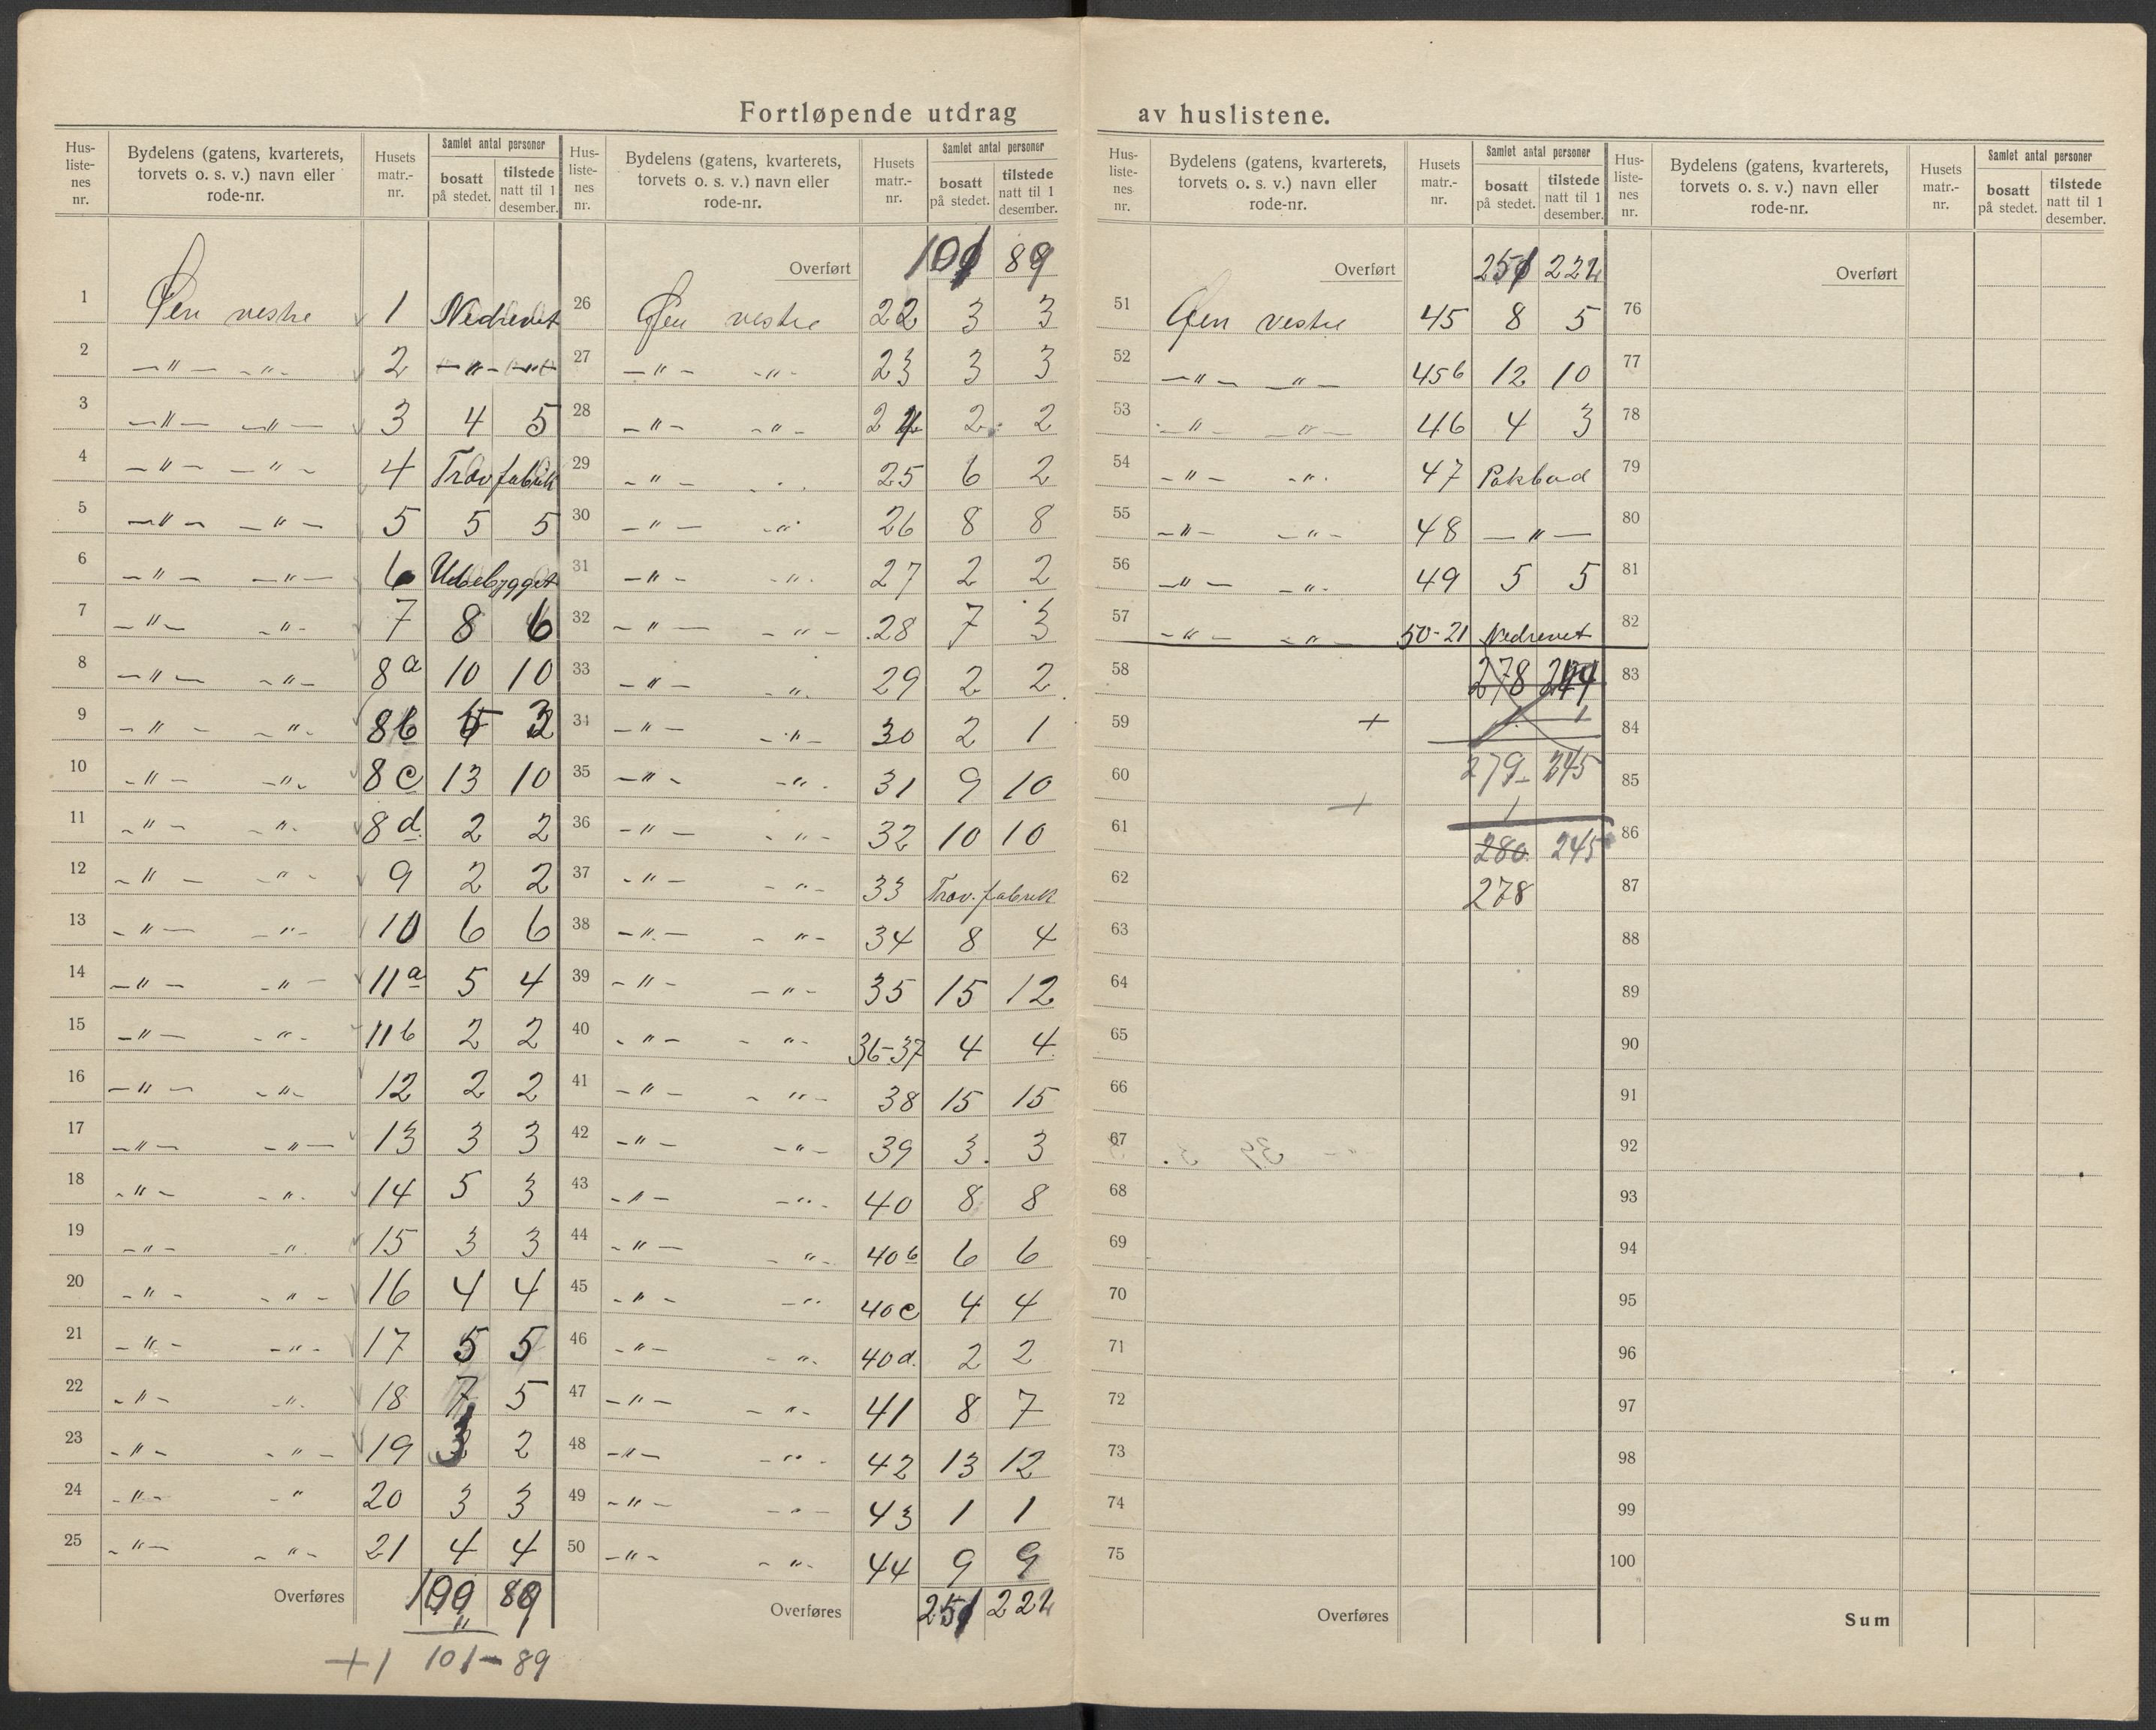 Fortløpende utdrag av huslistene.
Hus-liste-nes nr. | Bydelens (gatens, kvarterets, torvets o. s. v.) navn eller rode-nr. | Husets matr.-nr. | Samlet antal personer | bosatt på stedet. | tilstede natt til 1 desember.
1 Øen vestre 1 Nedrevet
2 —"— -"- 2 —"— —"—
3 —"— —"— 3 4 5
4 —"— —"— 4 Tranfabrik
5 —"— —"— 5 5 5
6 —"— —"— 6 Ubebygget
7 —"— -"- 7 8 6
8 —"— -"- 8a 10 10
9 —"— -"- 8b 5 3
10 —"— -"- 8c 13 10
11 -"- -"- 8d. 2 2
12 -"- -"- 9 2 2
13 -"- -"- 10 6 6
14 —"— -"- 11a 5 4
15 —"— -"- 11b 2 2
16 —"— -"- 12 2 2
17 —"— -"- 13 3 3
18 -"- -"- 14 5 3
19 -"- " 15 3 3
20 -"- -"- 16 4 4
21 -"- -"- 17 5 5
22 -"- -"- 18 7 5
23 -"- -"- 19 3 2
24 -"- -" 20 3 3
25 -"- -"- 21 4 4
Overføres 89
+1 101-89
Hus-liste-nes nr. | Bydelens (gatens, kvarterets, torvets o. s. v.) navn eller rode-nr. | Husets matr.-nr. | Samlet antal personer | bosatt på stedet. | tilstede natt til 1 desember.
Overført 101 89
26 Øen vestre 22 3 3
27 —"— -"- 23 3 3
28 —"— -"- 24 2 2
29 " 25 6 2
30 —"— -"- 26 8 8
31 —"— -"- 27 2 2
32 —"— -"- 28 7 3
33 —"— -"- 29 2 2
34 —"— -"- 30 2 1
35 —"— -"- 31 9 10
36 —"— -"- 32 10 10
37 -"- -"- 33 Tran.fabrik
38 —"— -"- 34 8 4
39 -"- -"- 35 15 12
40 -"- -"- 36-37 4 4
41 -"- -"- 38 15 15
42 -"- -"- 39 3 3
43 -"- -"- 40 8 8
44 -"- -"- 40b 6 6
45 -"- -"- 40c 4 4
46 -"- -"- 40d. 2 2
47 -"- -"- 41 8 7
48 -"- -"- 42 13 12
49 -"- -"- 43 1 1
50 -"- -"- 44 9 9
Overføres 251 222
Hus-liste-nes nr. | Bydelens (gatens, kvarterets, torvets o. s. v.) navn eller rode-nr. | Husets matr.-nr. | Samlet antal personer | bosatt på stedet. | tilstede natt til 1 desember.
Overført 251 222
51 Øen vestre 45 8 5
52 —"— —"— 45b 12 10
53 —"— —"— 46 4 3
54 -"- -"- 47 Pakbod
55 -"- -"- 48 —"—
56 -"- -"- 49 5 5
57 -"- -"- 50-21 Nedrevet
58 278 244
59 + 1
60 279 245
+ 1
61 280 245
62 278
63
64
65
66
67
68
69
70
71
72
73
74
75
Overføres
Hus-liste-nes nr. | Bydelens (gatens, kvarterets, torvets o. s. v.) navn eller rode-nr. | Husets matr.-nr. | Samlet antal personer | bosatt på stedet. | tilstede natt til 1 desember.
Overført
76
77
78
79
80
81
82
83
84
85
86
87
88
89
90
91
92
93
94
95
96
97
98
99
100
Sum